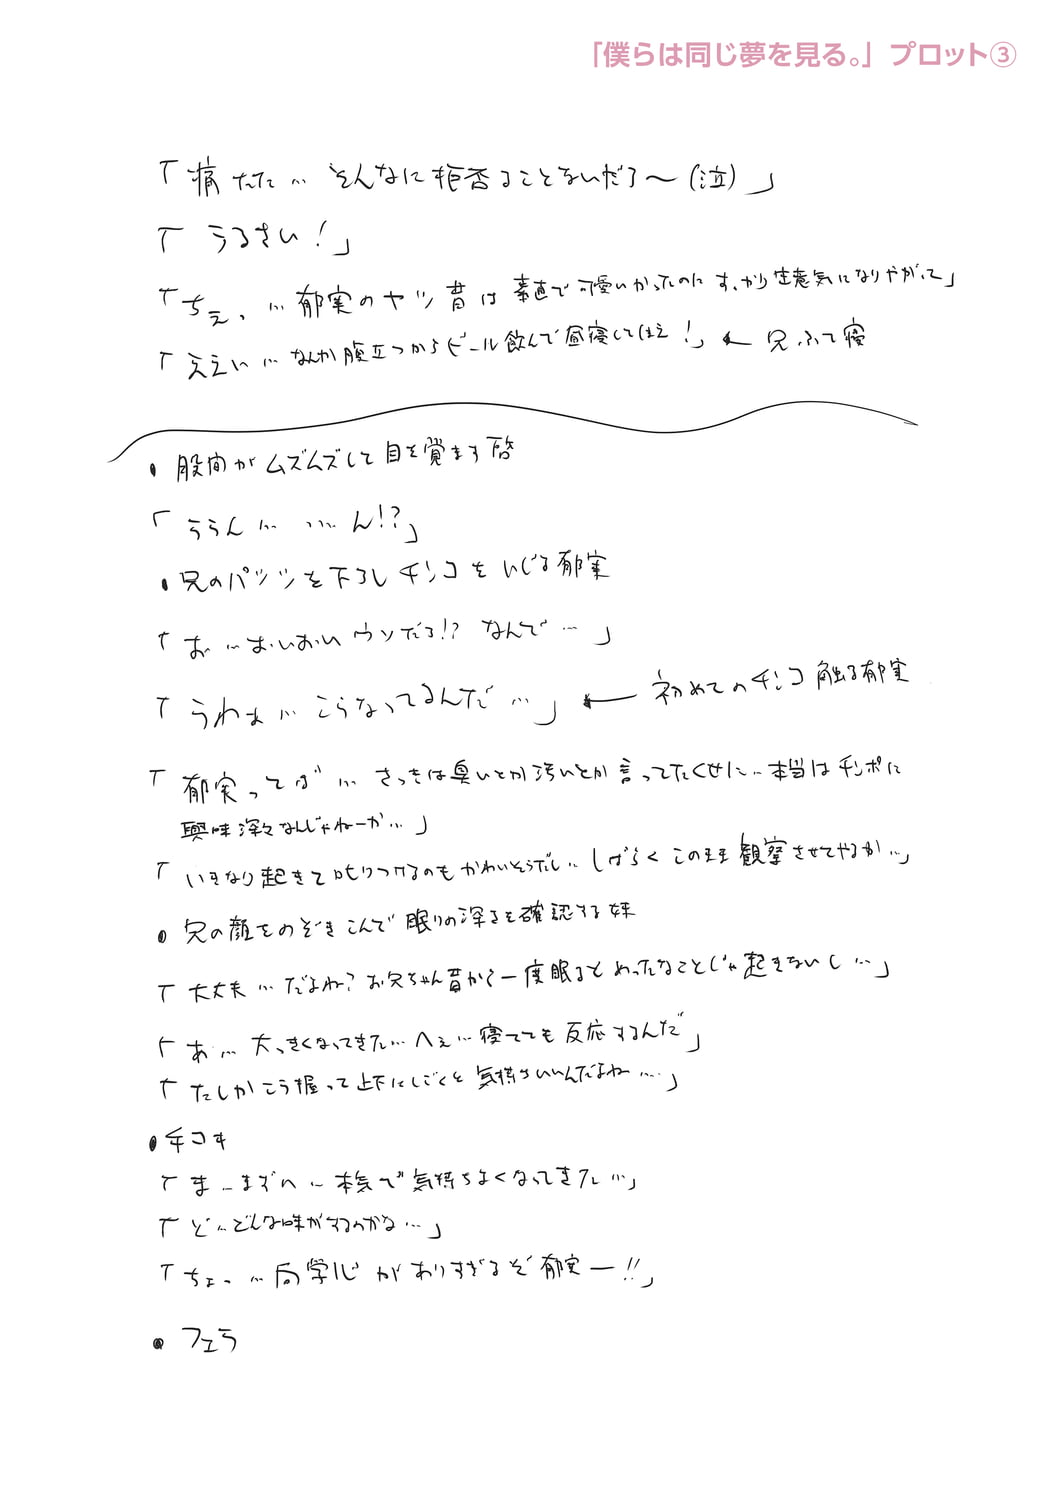 「僕らは同じ夢を見る。」プロット③
「痛たた… そんなに拒否ることないだろ〜(泣)」
「うるさい！」
「ちぇっ …郁実のヤツ昔は素直で可愛いかったのにすっかり生意気になりやがって」
「ええい…なんか腹立つからビール飲んで昼寝してしまえ！」← 兄ふて寝
● 股間がムズムズして目を覚ます啓
「ううん… …ん!?」
● 兄のパンツを下ろしチンコをいじる郁実
「お…おいおいウソだろ!? なんで…」
「うわぁ… こうなってるんだ…」← 初めてのチンコ触る郁実
「郁実ってば… さっきは臭いとか汚いとか言ってたくせに…本当はチンポに
興味深々なんじゃねーか…」
「いきなり起きて叱りつけるのもかわいそうだし…しばらくこのまま観察させてやるか…」
● 兄の顔をのぞきこんで眠りの深さを確認する妹
「大丈夫…だよね? お兄ちゃん昔から一度眠るとめったなことじゃ起きないし…」
「あ… 大っきくなってきた…へぇ…寝てても反応するんだ」
「たしかこう握って上下にしごくと気持ちいいんだよね…」
● 手コキ
「ま…まずい…本気で気持ちよくなってきた…」
「ど…どんな味がするのかな…」
「ちょっ…向学心がありすぎるぞ郁実ー!!」
● フェラ